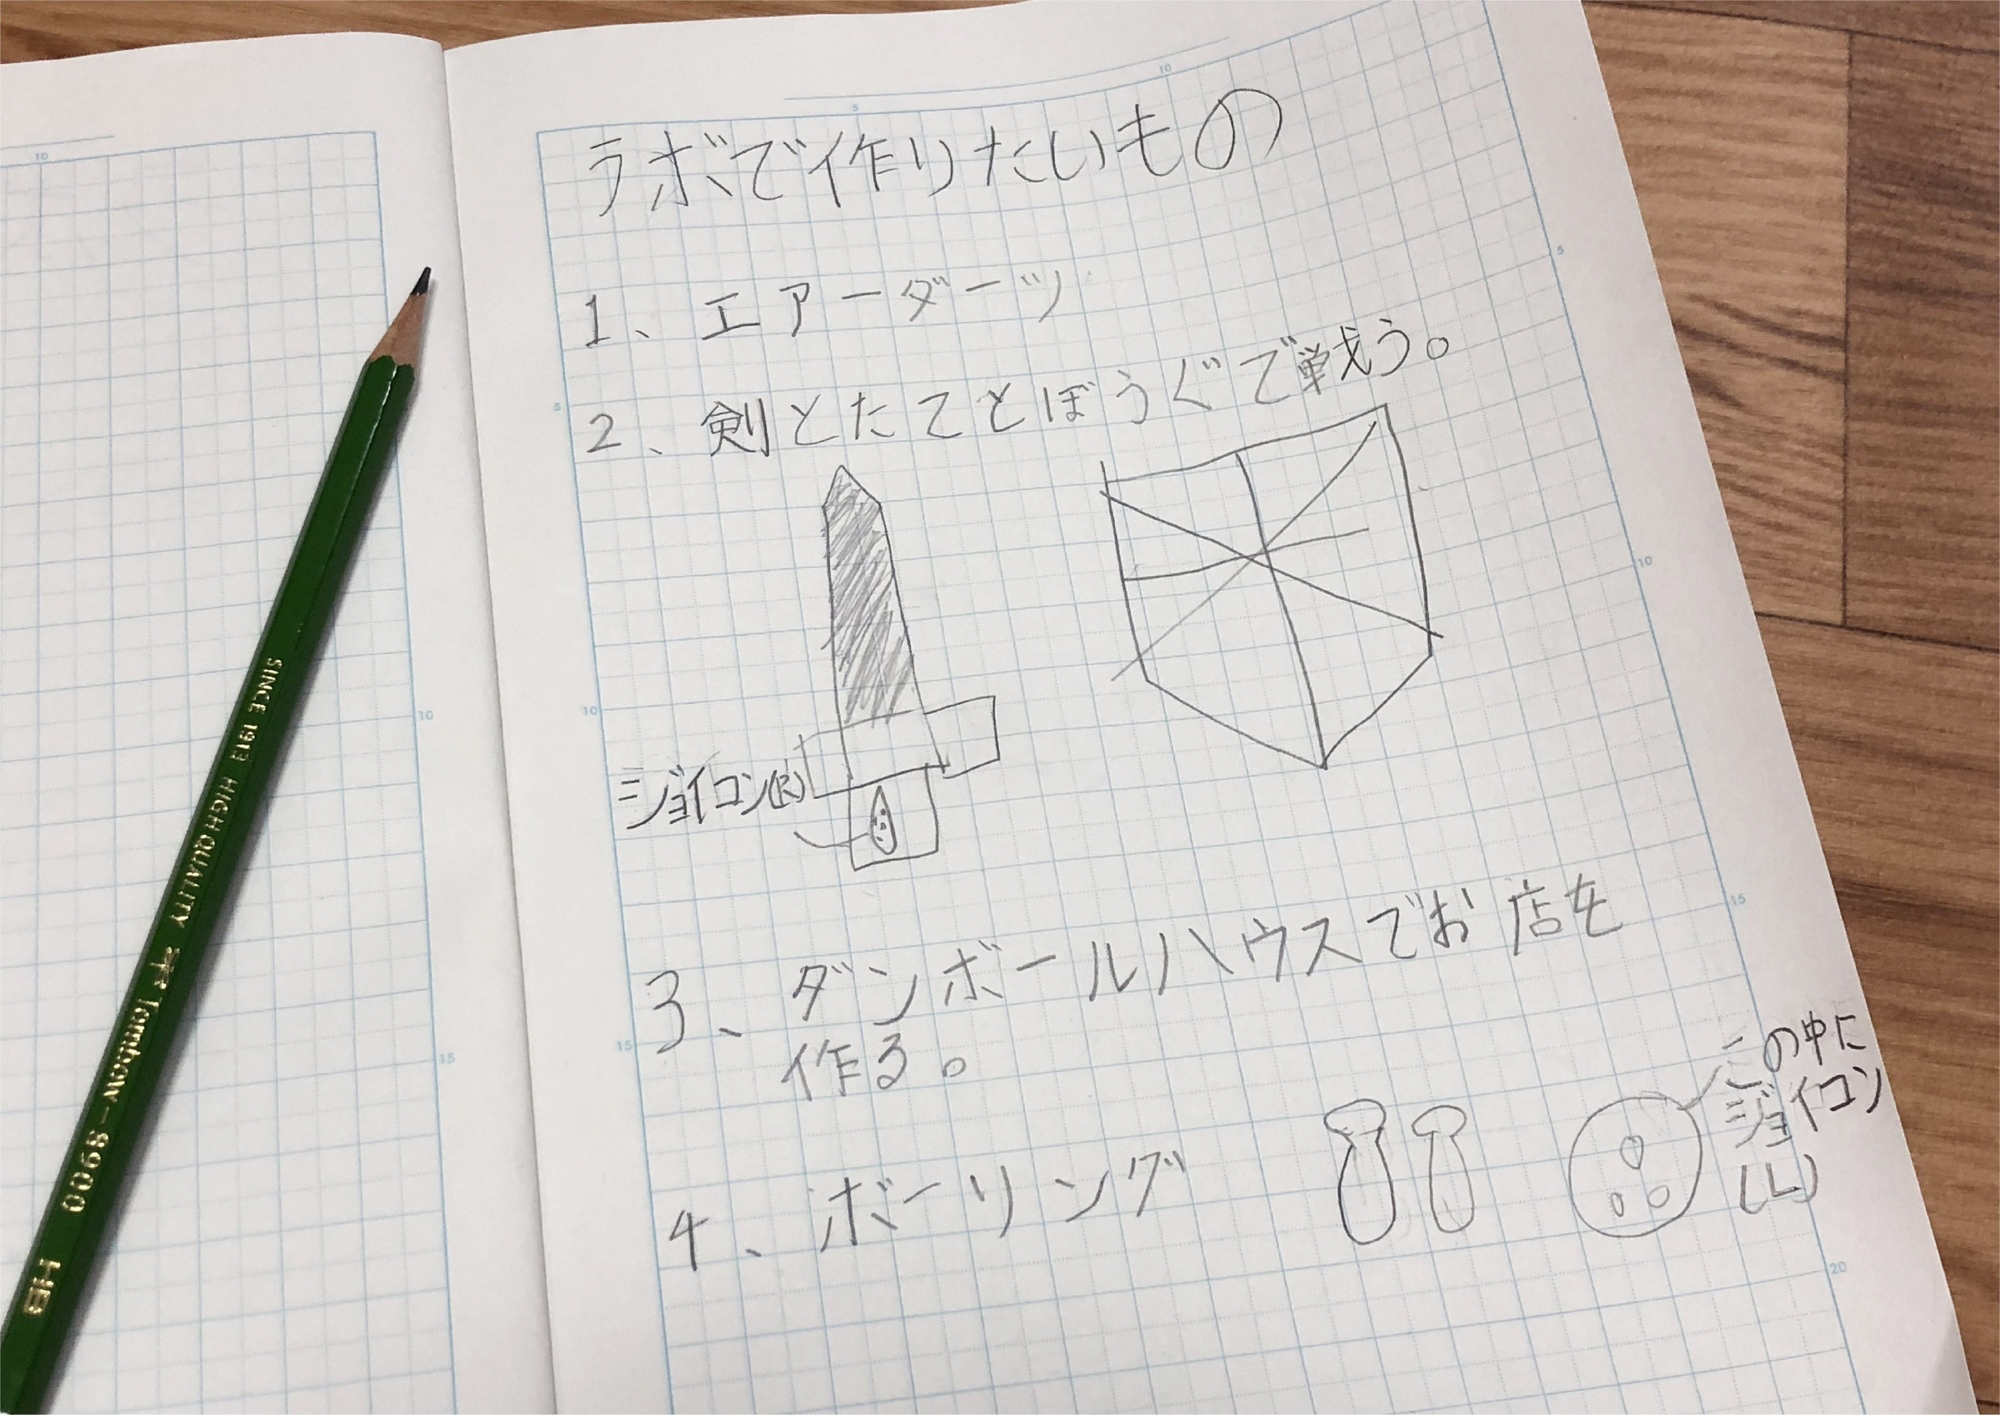 ラボで作りたいもの
1、エアーダーツ
2、剣とたてとぼうぐで戦う。
ジョイコン(R)
3、ダンボールハウスでお店を
作る。
4、ボーリング
この中に
ジョイコン
(L)
SINCE 1913 HIGH QUALITY Tombow-8900 HB
10
10
15
5
10
5
10
15
5
10
15
20